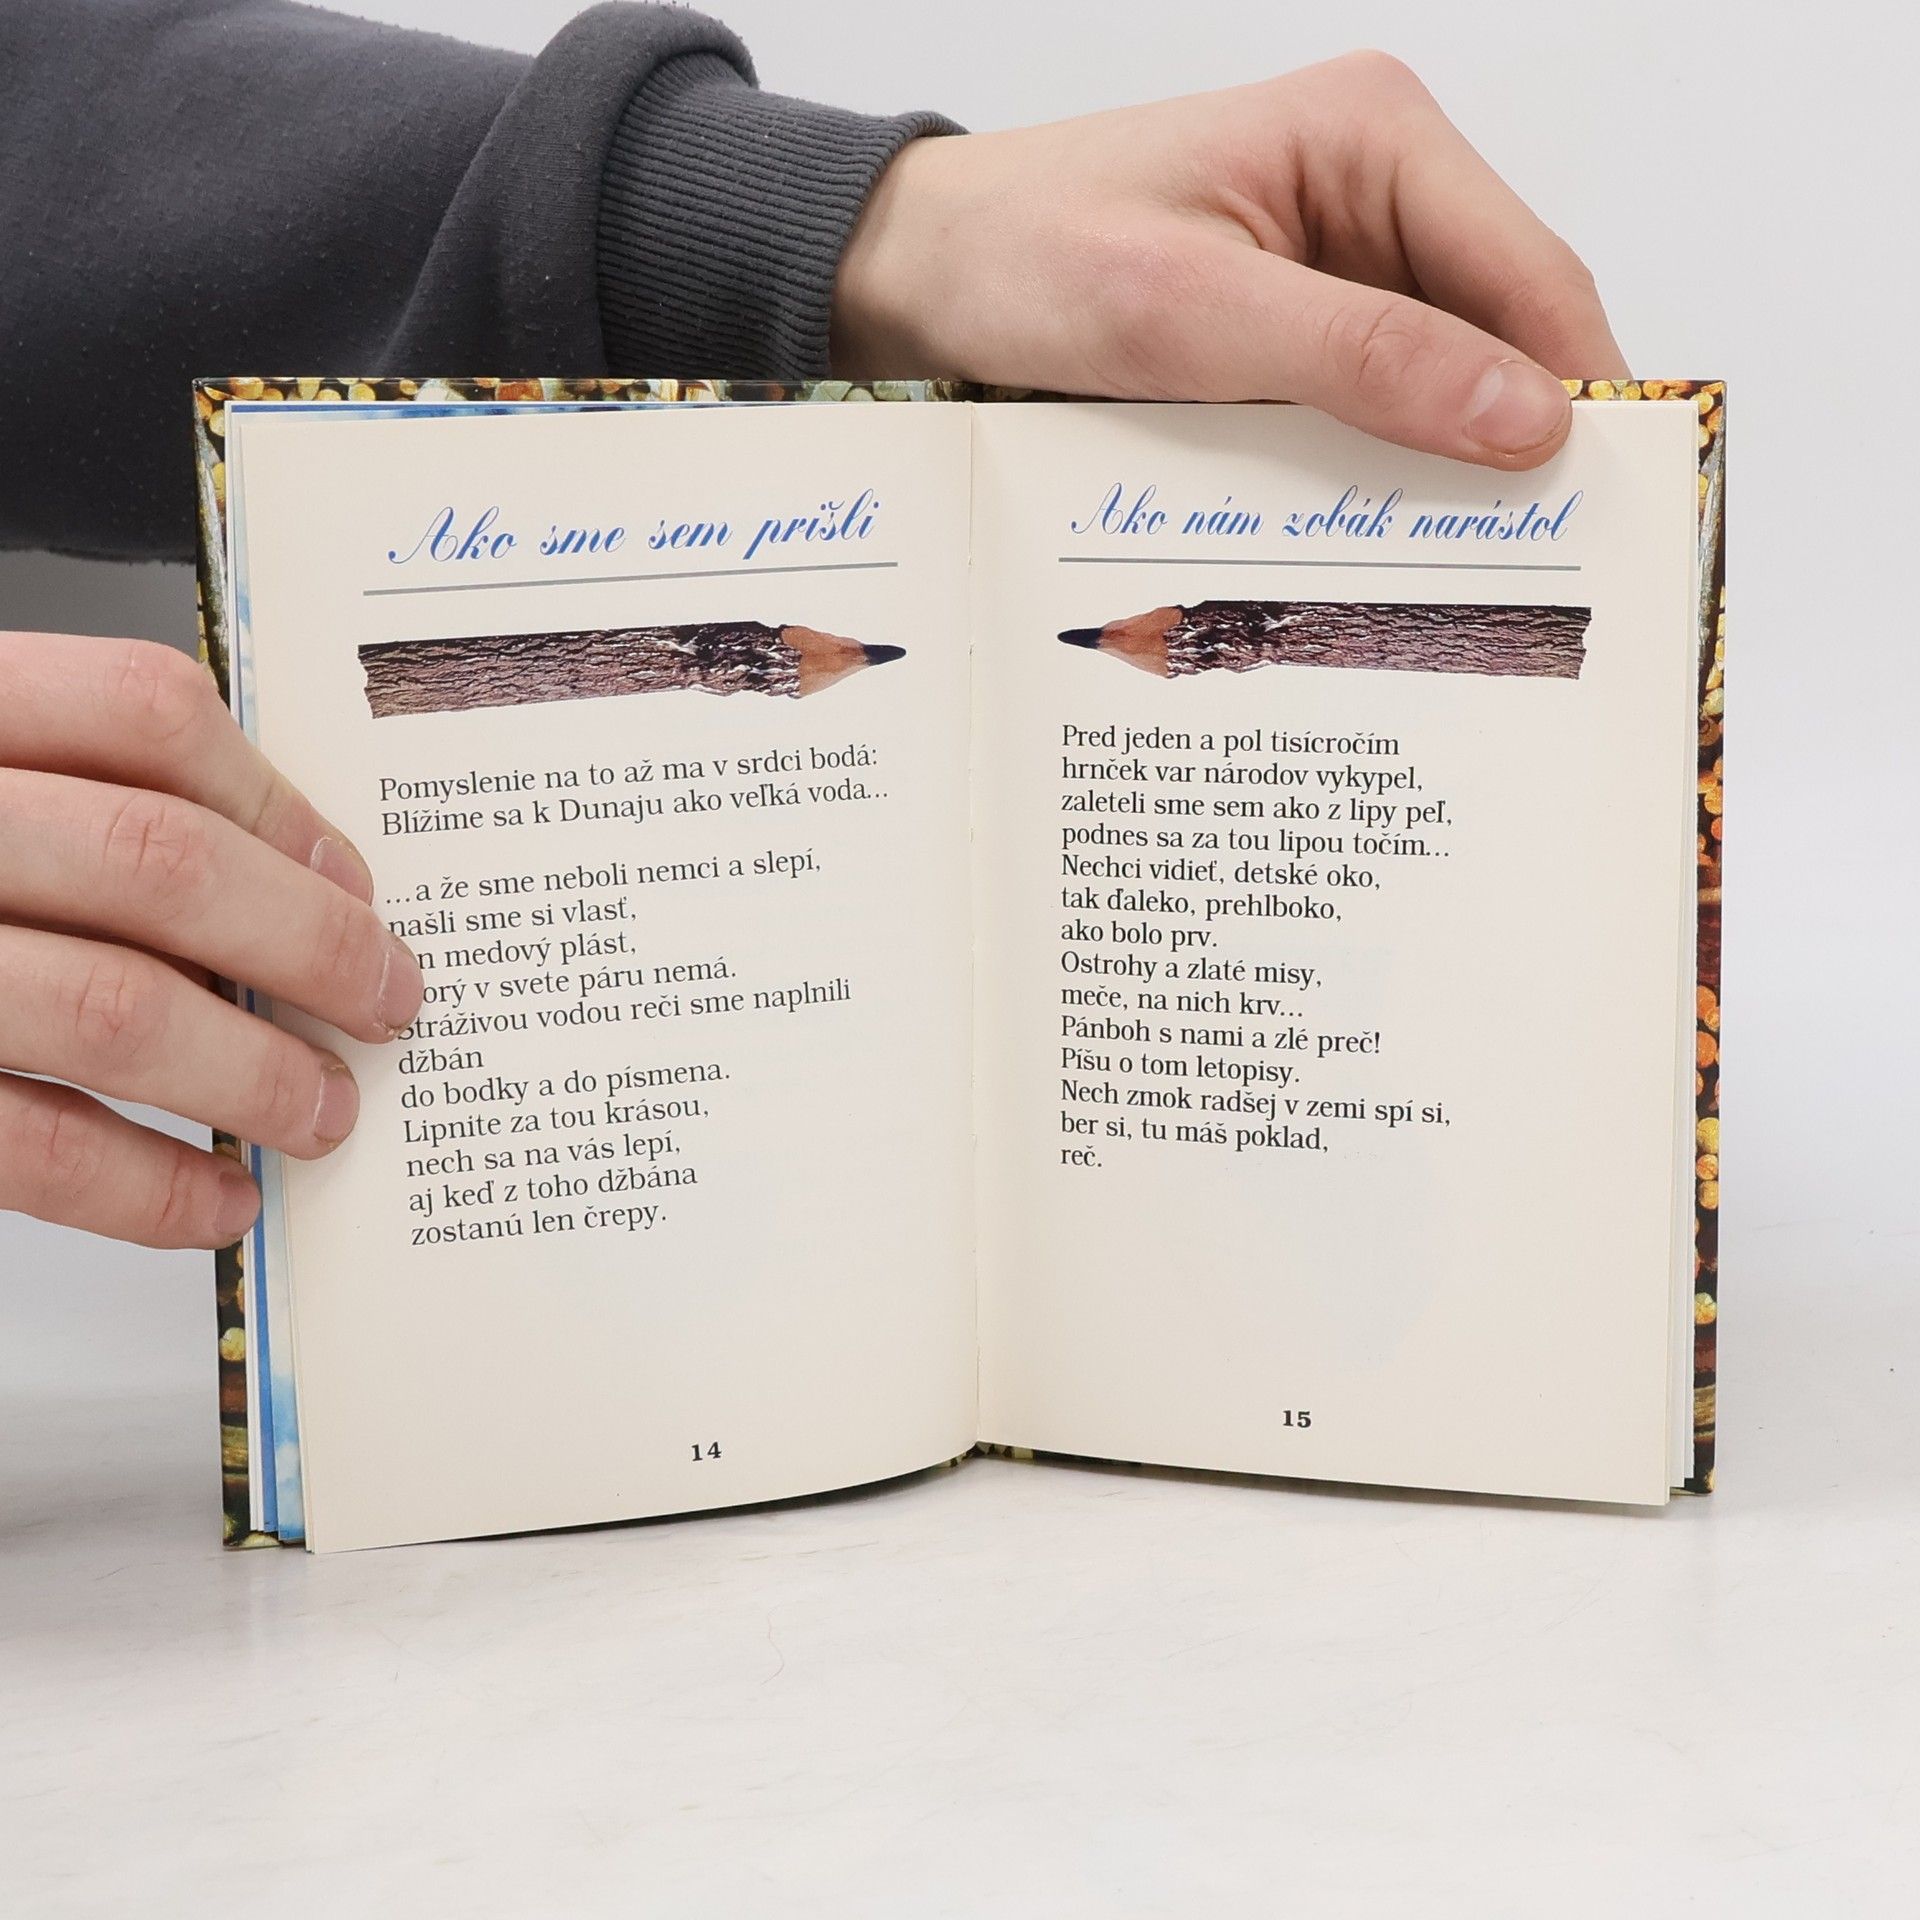 Ako sme sem prišli
Pomyslenie na to až ma v srdci bodá:
Blížime sa k Dunaju ako veľká voda...
...a že sme neboli nemci a slepí,
našli sme si vlasť,
medový plást,
v svete páru nemá.
Stráživou vodou reči sme naplnili
džbán
do bodky a do písmena.
Lipnite za tou krásou,
nech sa na vás lepí,
aj keď z toho džbána
zostanú len črepy.
14
Ako nám zobák narástol
Pred jeden a pol tisícročím
hrnček var národov vykypel,
zaleteli sme sem ako z lipy peľ,
podnes sa za tou lipou točím...
Nechci vidieť, detské oko,
tak ďaleko, prehlboko,
ako bolo prv.
Ostrohy a zlaté misy,
meče, na nich krv...
Pánboh s nami a zlé preč!
Píšu o tom letopisy.
Nech zmok radšej v zemi spí si,
ber si, tu máš poklad,
reč.
15